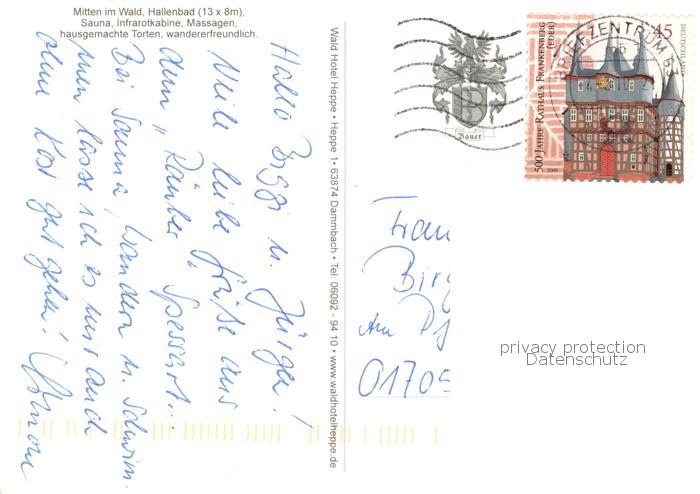 Mitten im Wald, Hallenbad (13 x 8m),
Sauna, Infrarotkabine, Massagen,
hausgemachte Torten, wandererfreundlich.
Hallo Biggi u. Jürgen!
Viele liebe Grüße aus
dem „Räuber" Spessart...
Bei Sauna, Wandern u. Schwim-
men lasse ich es mir auch
ohne Kost gut gehen!
Wald Hotel Heppe • Heppe 1 • 63874 Dammbach • Tel: 06092 - 94 10 • www.waldhotelheppe.de
Bauer
BRIEFZENTRUM 63
45
DEUTSCHLAND
500 JAHRE RATHAUS FRANKENBERG
(EDER)
2009
Frau
Birg
Am
01705
privacy protection
Datenschutz